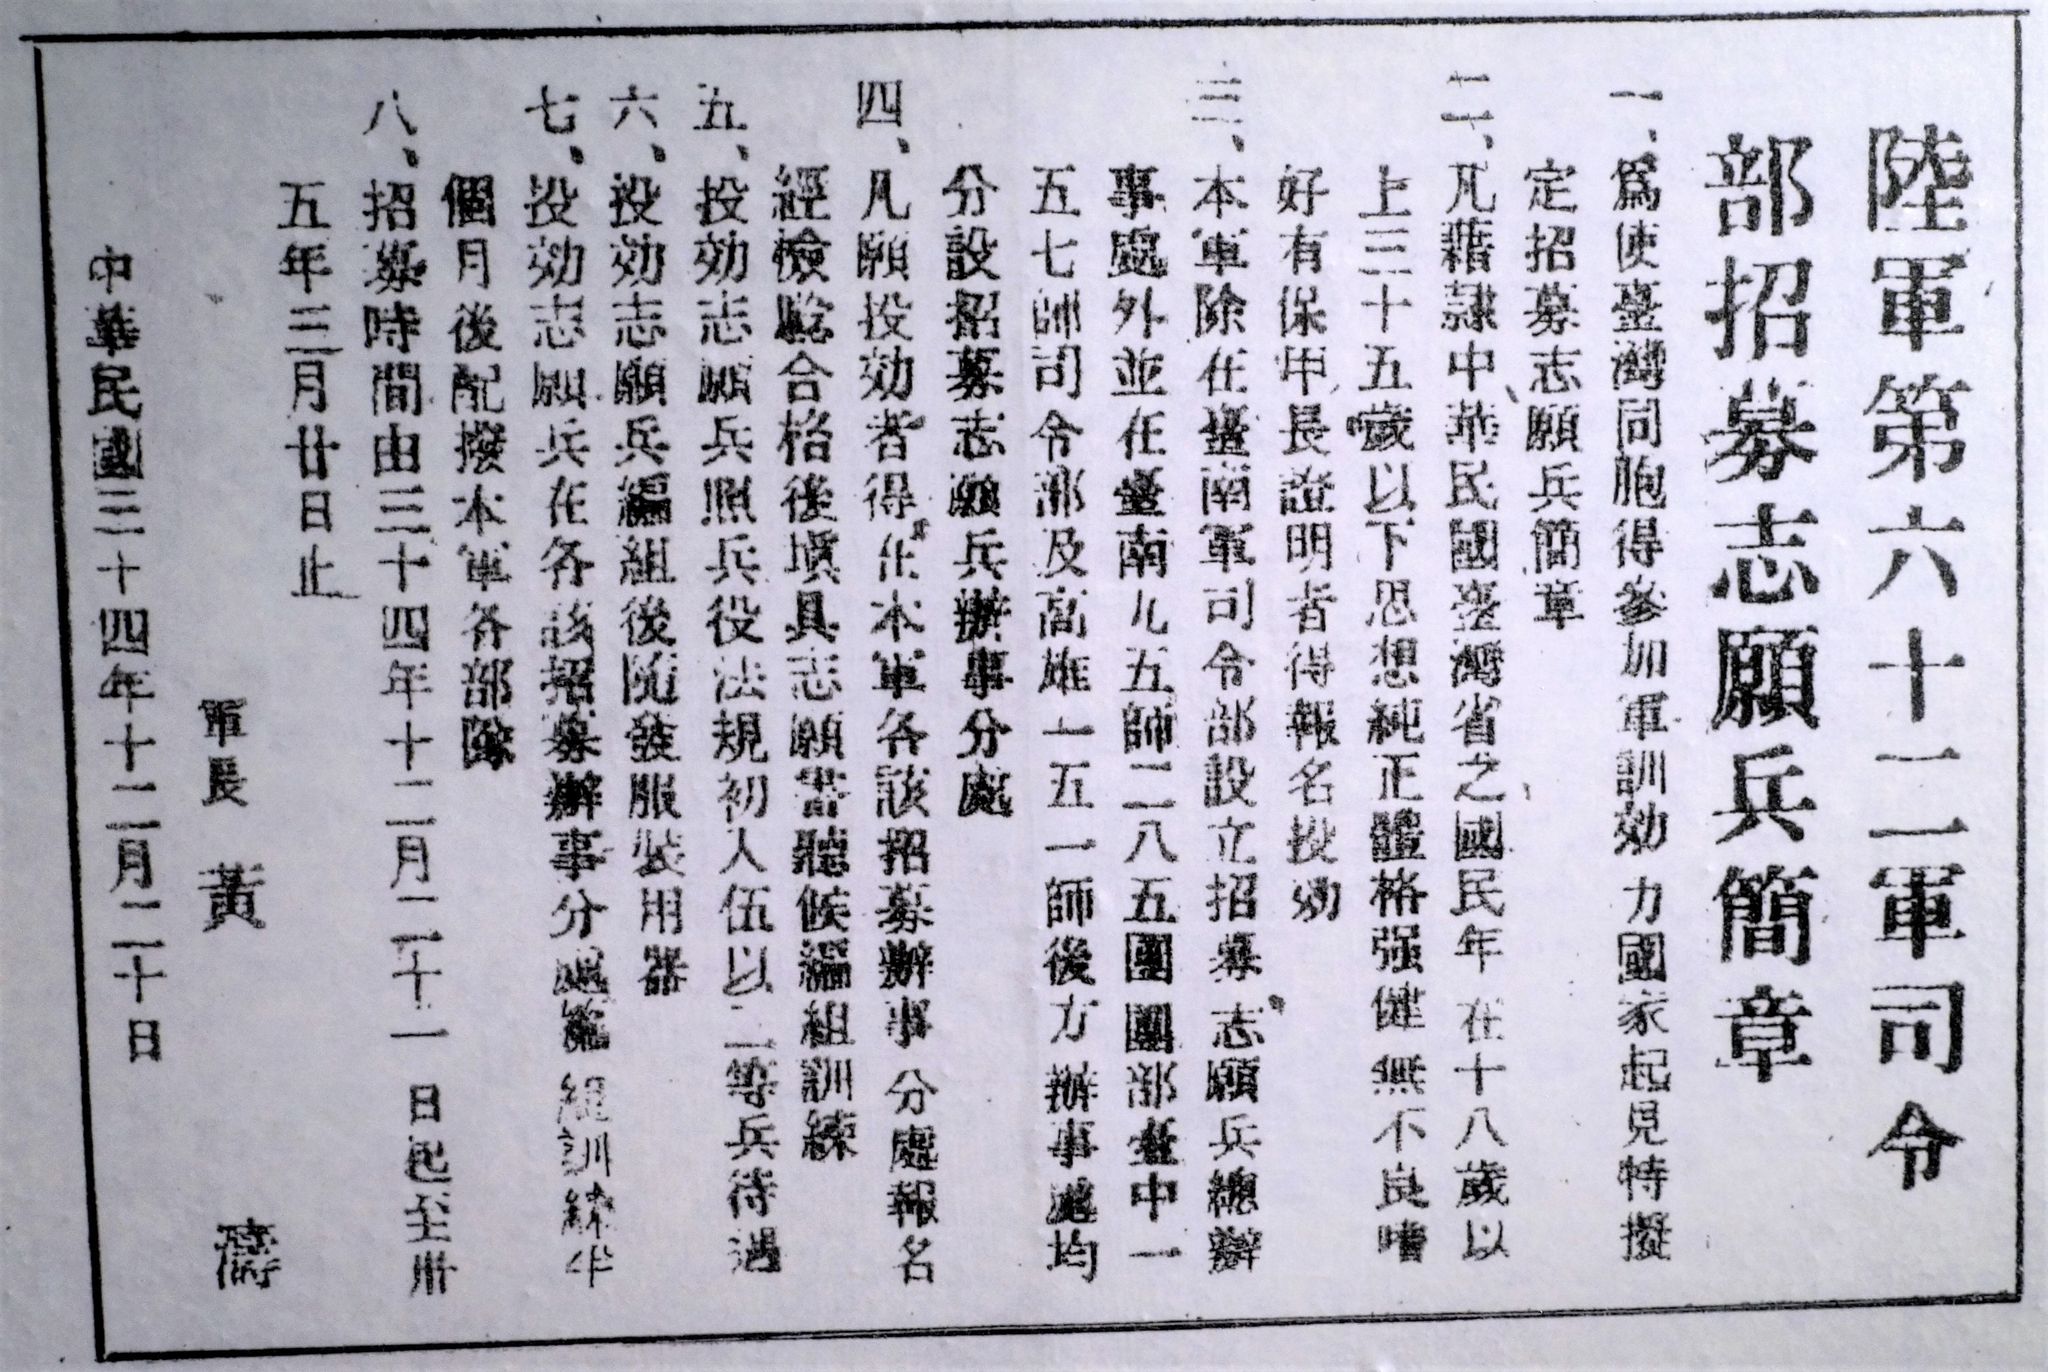 陸軍第六十二軍司令
部招募志願兵簡章
一、爲使臺灣同胞得參加軍訓効力國家起見特擬
定招募志願兵簡章
二、凡藉隸中華民國臺灣省之國民年在十八歲以
上三十五歲以下思想純正體格强健無不良嗜
好有保甲長證明者得報名投効
三、本軍除在臺南軍司令部設立招募志願兵總辦
事處外並在臺南九五師二八五團團部臺中一
五七師司令部及高雄一五一師後方辦事處均
分設招募志願兵辦事分處
四、凡願投効者得在本軍各該招募辦事分處報名
經檢驗合格後塡具志願書聽候編組訓練
五、投効志願兵照兵役法規初入伍以二等兵待遇
六、投効志願兵編組後隨發服裝用器
七、投効志願兵在各該招募辦事分處編組訓練半
個月後配撥本軍各部隊
八、招募時間由三十四年十二月二十一日起至卅
五年三月廿日止
軍長 黃 濤
中華民國三十四年十二月二十日